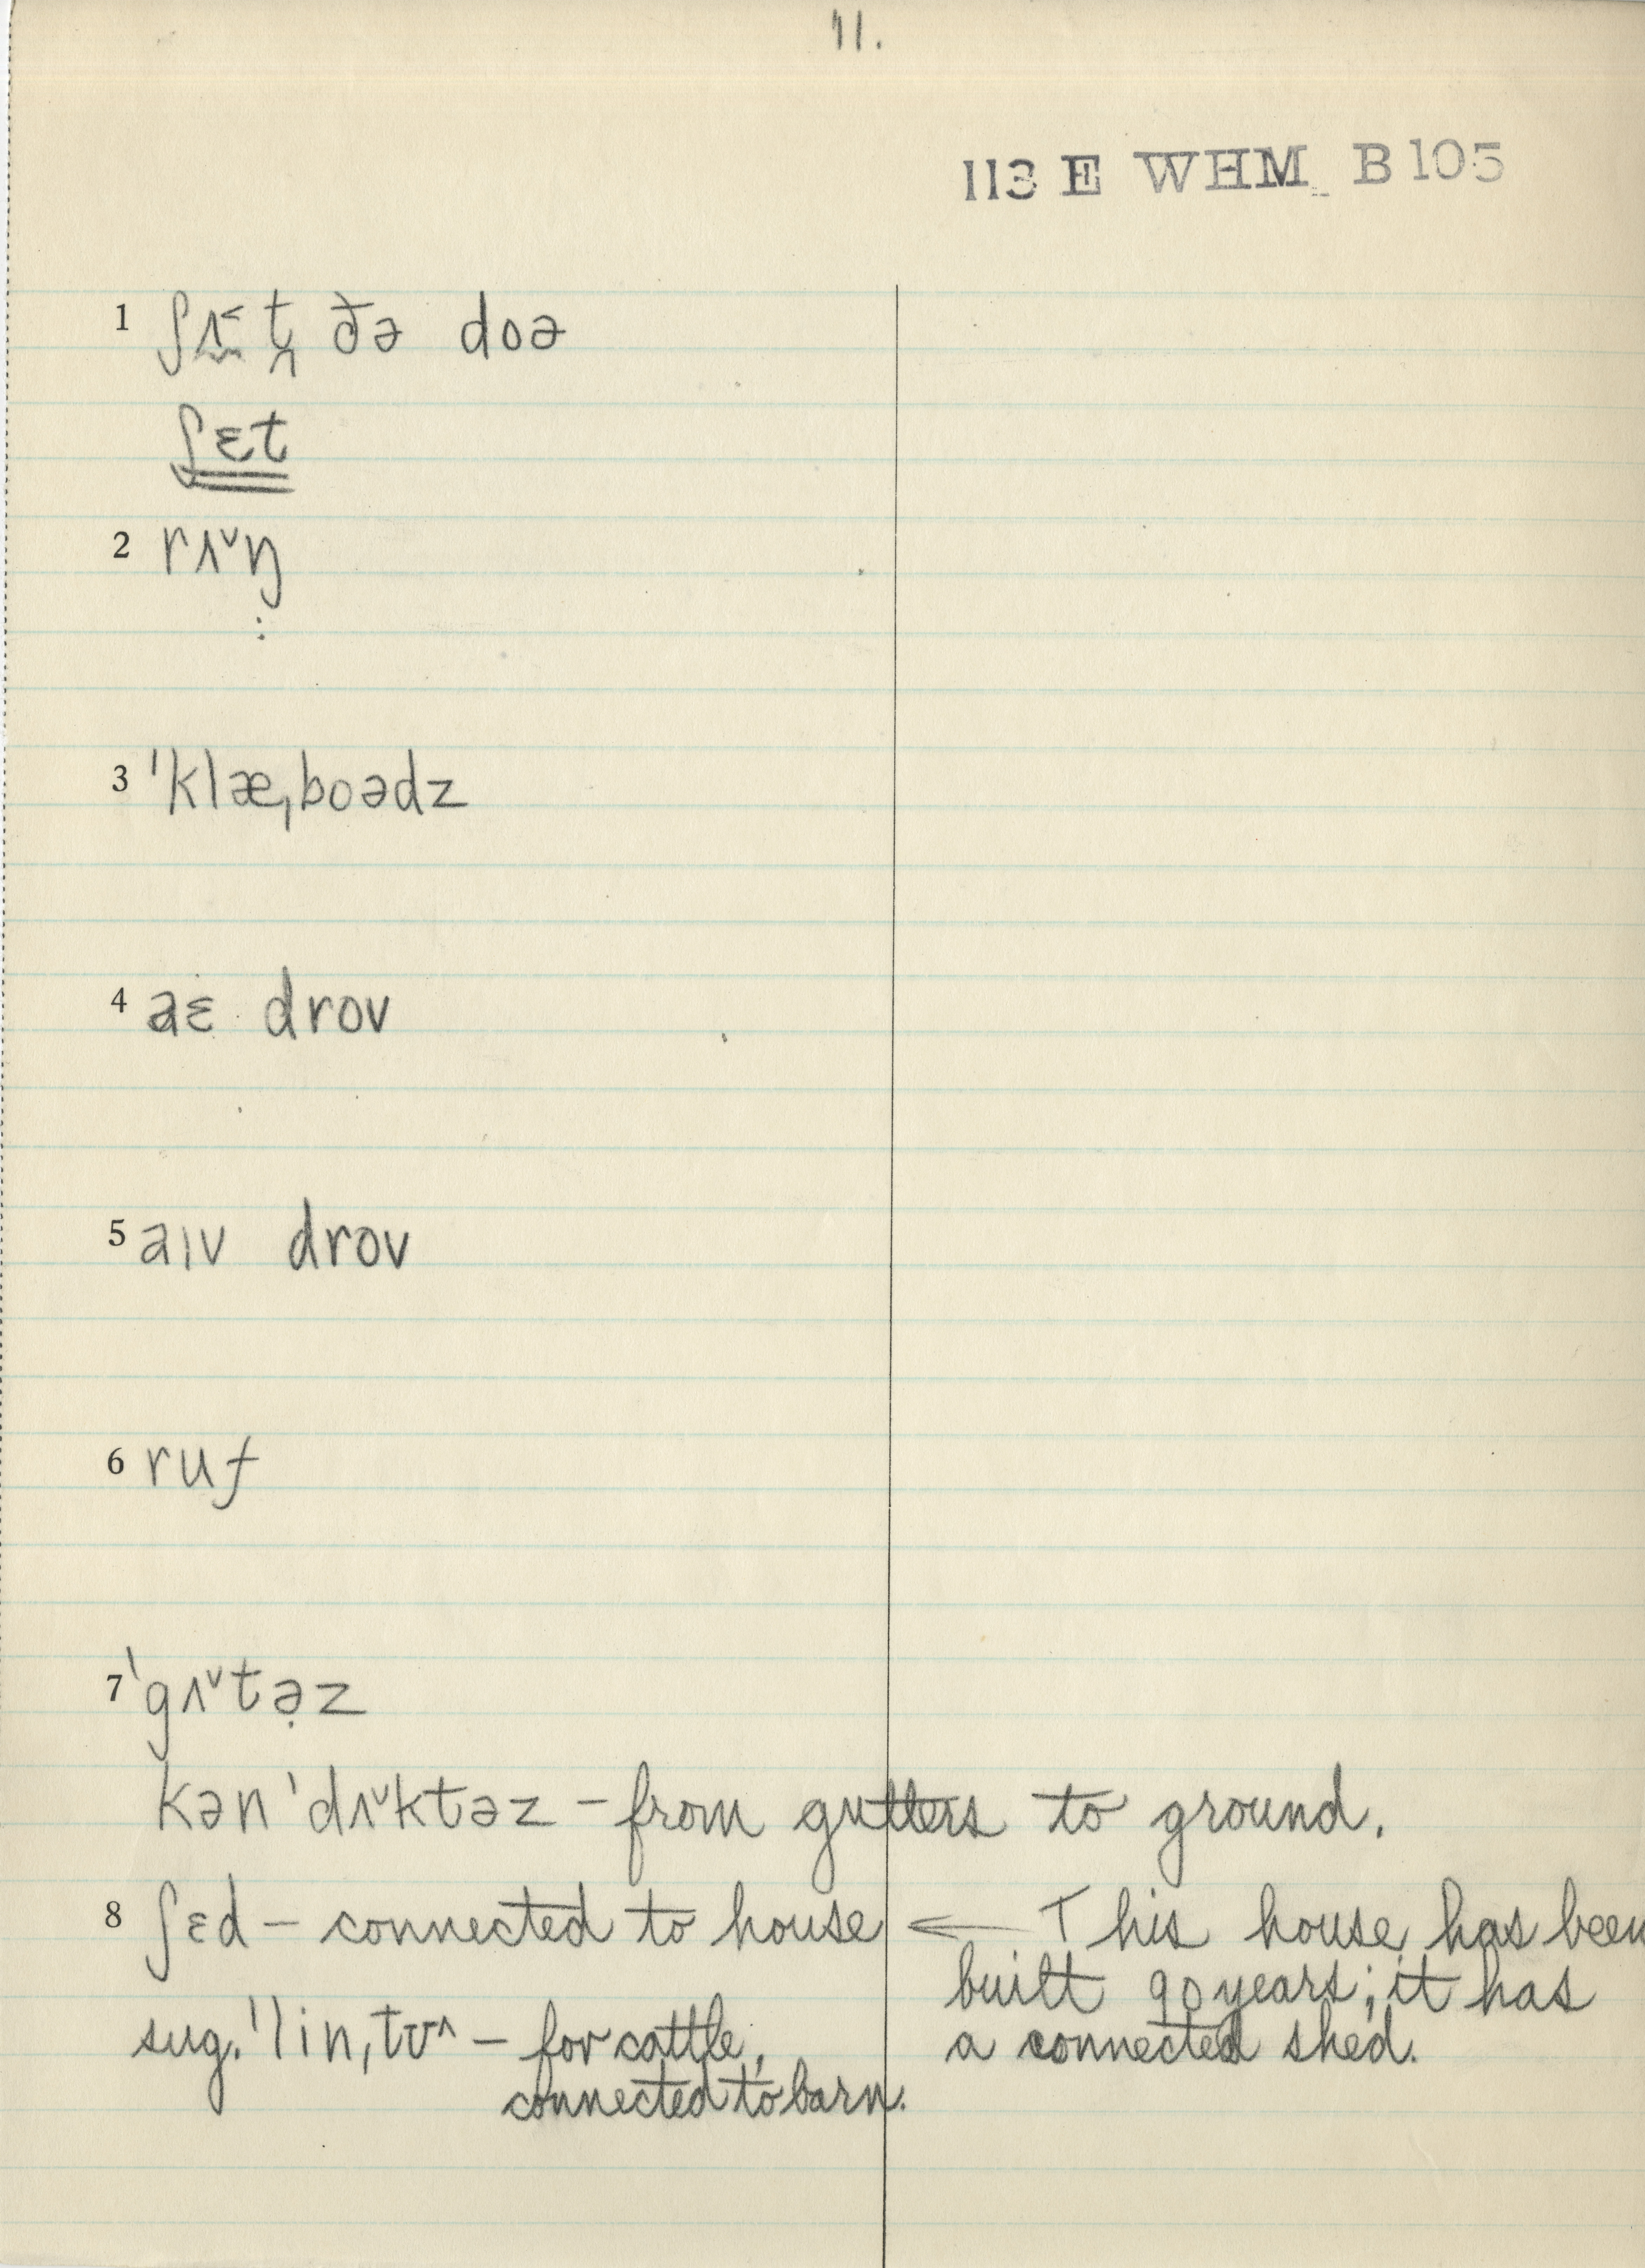 11.
113 E WHM B 105
1 ʃʌ̰˂t̯ ðə doə
ʃɛt
2 rʌ˅ŋ
:
3 ˈklæˌboədz
4 aɛ drov
5 aɪv drov
6 ruf
7 ˈgʌ˅tə̣z
kənˈdʌ˅ktəz – from gutters to ground.
8 ʃɛd – connected to house ← This house has been
built 90 years; it has
sug. ˈlinˌtʊ˄ – for cattle, a connected shed.
connected to barn.